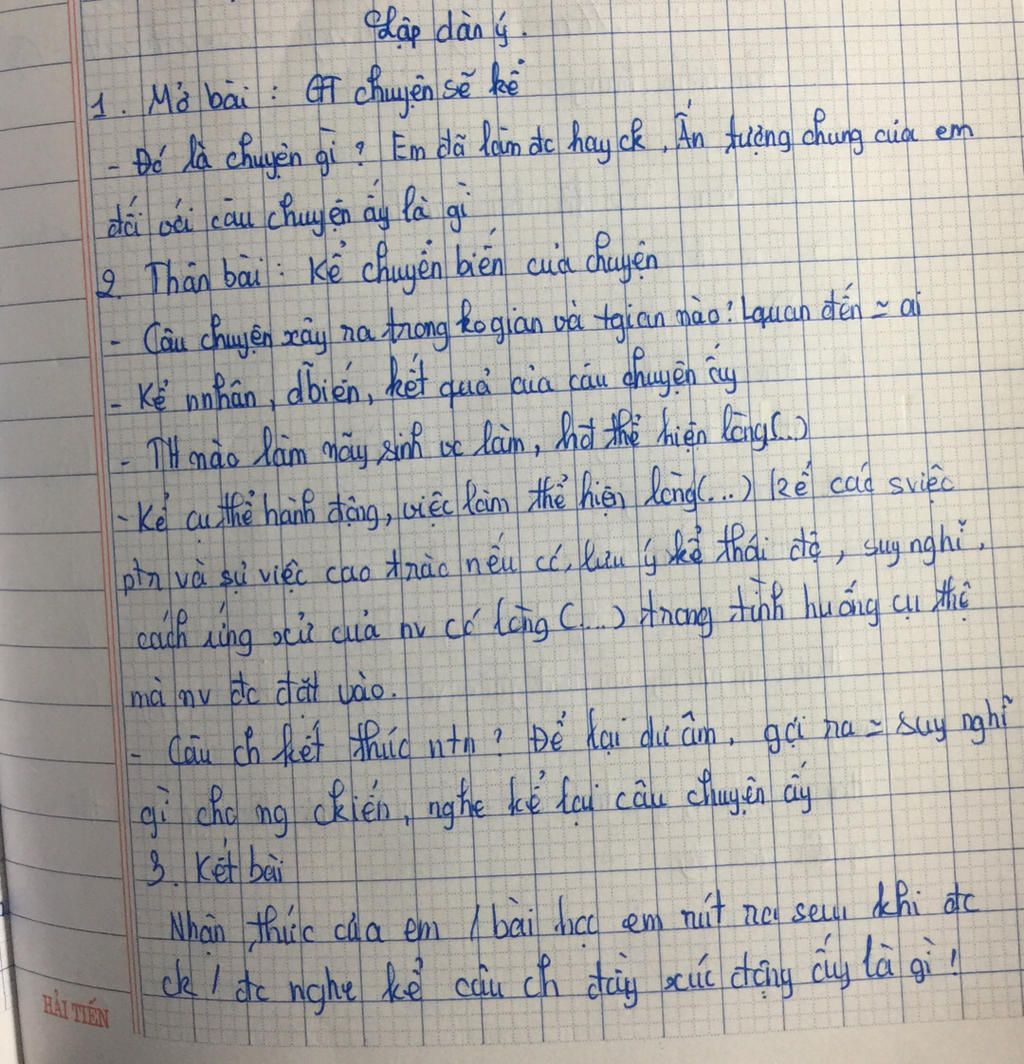 Lập dàn ý.
1. Mở bài: GT chuyện sẽ kể
- Đó là chuyện gì? Em đã làm đc hay ck, Ấn tượng chung của em
đối với câu chuyện ấy là gì
2. Thân bài: Kể chuyển biến của chuyện
- Câu chuyện xảy ra trong ko gian và tgian nào? Lquan đến ~ ai
- Kể nnhân, dbiến, kết quả của câu chuyện ấy
- TH nào làm nảy sinh vc làm, hđ thể hiện lòng(...)
- Kể cụ thể hành động, việc làm thể hiện lòng(...) Kể các sviệc
ptr và sự việc cao trào nếu có, lưu ý kể thái độ, suy nghĩ,
cách ứng xử của nv có lòng (...) trong tình huống cụ thể
mà nv đc đặt vào.
- Câu ch kết thúc ntn? Để lại dư âm, gợi ra ~ suy nghĩ
gì cho ng ckiến, nghe kể lại câu chuyện ấy
3. Kết bài
Nhận thức của em / bài học em rút ra sau khi đc
ck / đc nghe kể câu ch đầy xúc động ấy là gì!
HẢI TIẾN